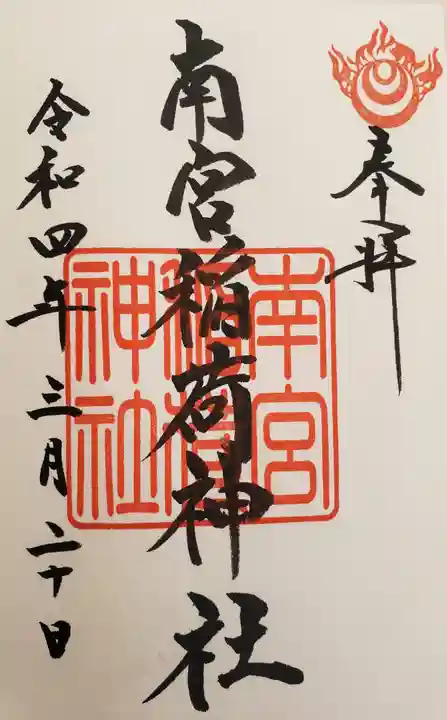 奉拝
南宮稲荷神社
南宮稲荷神社
令和四年三月二十日